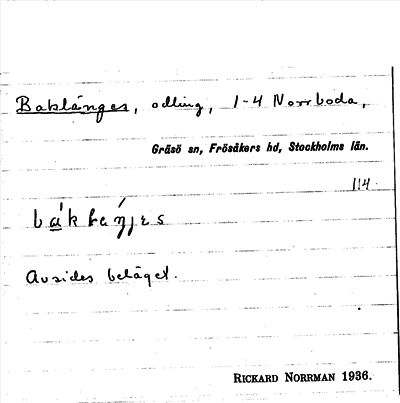 Baklänges, odling, 1-4 Norrboda,
Gräsö sn, Frösåkers hd, Stockholms län.
114.
Avsides beläget.
RICKARD NORRMAN 1936.